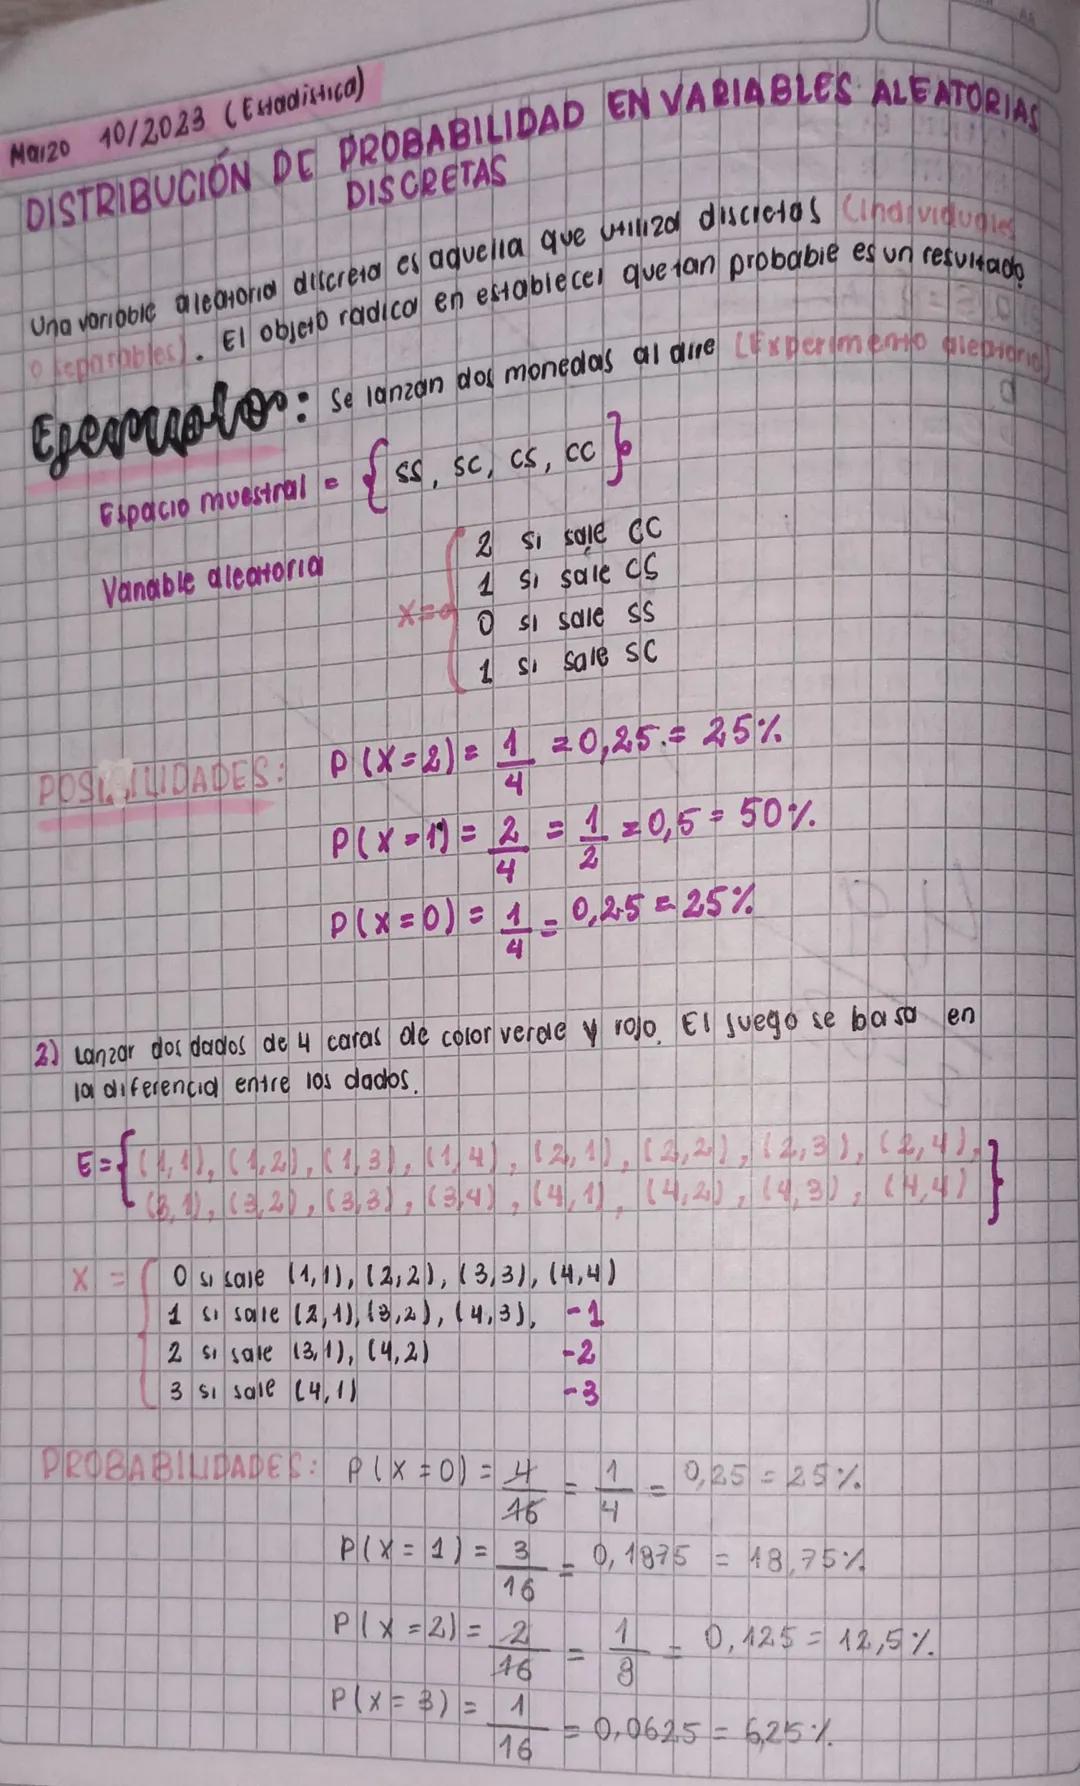 Marzo 10/2023 (Estadística)
DISTRIBUCIÓN DE PROBABILIDAD EN VARIABLES ALEATORIAS
DISCRETAS
Una variable aleatoria discreta es aquella que utiliza discretas (individuales
o separables). El objeto radica en establecer que tan probable es un resultado
Ejemplos: Se lanzan dos monedas al aire (Experimento aleatorio)
Espacio muestral = { SS, SC, CS, CC }
Variable aleatoria
X = { 2 si sale CC
1 si sale CS
0 si sale SS
1 si sale SC
P(X=2) = 1/4 = 0,25 = 25%
P(X=1) = 2/4 = 1/2 = 0,5 = 50%
P(X=0) = 1/4 = 0,25 = 25%
2) Lanzar dos dados de 4 caras de color verde y rojo. El juego se basa en
la diferencia entre los dados.
E = { (1,1), (1,2), (1,3), (1,4), (2,1), (2,2), (2,3), (2,4),
(3,1), (3,2), (3,3), (3,4), (4,1), (4,2), (4,3), (4,4) }
X = { 0 si sale (1,1), (2,2), (3,3), (4,4)
1 si sale (2,1), (3,2), (4,3), -1
2 si sale (3,1), (4,2) -2
3 si sale (4,1) -3
PROBABILIDADES: P(X=0) = 4/16 = 1/4 = 0,25 = 25%
P(X=1) = 3/16 = 0,1875 = 18,75%
P(X=2) = 2/16 = 1/8 = 0,125 = 12,5%
P(X=3) = 1/16 = 0,0625 = 6,25%